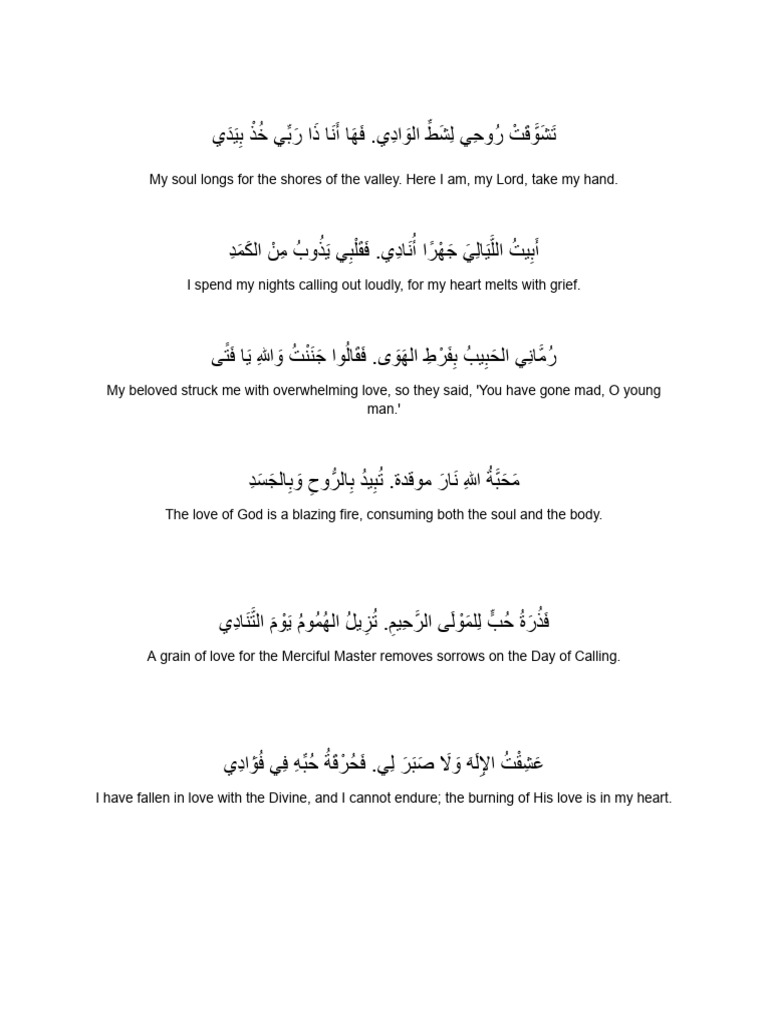 تَشَوَّقَتْ رُوحِي لِشَطِّ الوَادِي. فَهَا أَنَا ذَا رَبِّي خُذْ بِيَدَي
My soul longs for the shores of the valley. Here I am, my Lord, take my hand.
أَبِيتُ اللَّيَالِيَ جَهْرًا أُنَادِي. فَقَلْبِي يَذُوبُ مِنْ الكَمَدِ
I spend my nights calling out loudly, for my heart melts with grief.
رُمَّانِي الحَبِيبُ بِفَرْطِ الهَوَى. فَقَالُوا جَنَنْتُ وَاللهِ يَا فَتًى
My beloved struck me with overwhelming love, so they said, 'You have gone mad, O young
man.'
مَحَبَّةُ اللهِ نَارَ موقدة. تُبِيدُ بِالرُّوحِ وَبِالجَسَدِ
The love of God is a blazing fire, consuming both the soul and the body.
فَذُرَةُ حُبٍّ لِلمَوْلَى الرَّحِيمِ. تُزِيلُ الهُمُومُ يَوْمَ التَّنَادِي
A grain of love for the Merciful Master removes sorrows on the Day of Calling.
عَشِقْتُ الإِلَهَ وَلَا صَبَرَ لِي. فَحُرْقَةُ حُبِّهِ فِي فُؤَادِي
I have fallen in love with the Divine, and I cannot endure; the burning of His love is in my heart.